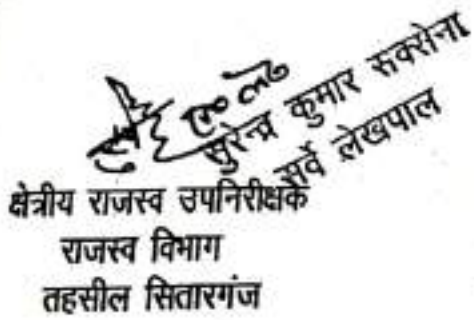 सुरेन्द्र कुमार सक्सेना
सर्वे लेखपाल
क्षेत्रीय राजस्व उपनिरीक्षक
राजस्व विभाग
तहसील सितारगंज